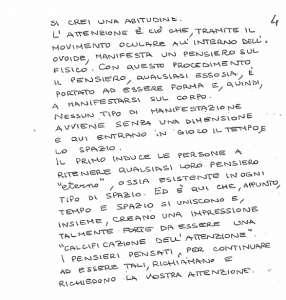 4
SI CREI UNA ABITUDINE.
L'ATTENZIONE È CIÒ CHE, TRAMITE IL
MOVIMENTO OCULARE ALL'INTERNO DELL'
OVOIDE, MANIFESTA UN PENSIERO SUL
FISICO. CON QUESTO PROCEDIMENTO
IL PENSIERO, QUALSIASI ESSO SIA, È
PORTATO AD ESSERE FORMA E, QUINDI,
A MANIFESTARSI SUL CORPO.
NESSUN TIPO DI MANIFESTAZIONE
AVVIENE SENZA UNA DIMENSIONE
E QUI ENTRANO IN GIOCO IL TEMPO E
LO SPAZIO.
IL PRIMO INDUCE LE PERSONE A
RITENERE QUALSIASI LORO PENSIERO
"eterno", OSSIA ESISTENTE IN OGNI
TIPO DI SPAZIO. ED È QUI CHE, APPUNTO,
TEMPO E SPAZIO SI UNISCONO E,
INSIEME, CREANO UNA IMPRESSIONE
TALMENTE FORTE DA ESSERE UNA
"CALCIFICAZIONE DELL'ATTENZIONE".
I PENSIERI PENSATI, PER CONTINUARE
AD ESSERE TALI, RICHIAMANO E
RICHIEDONO LA VOSTRA ATTENZIONE.